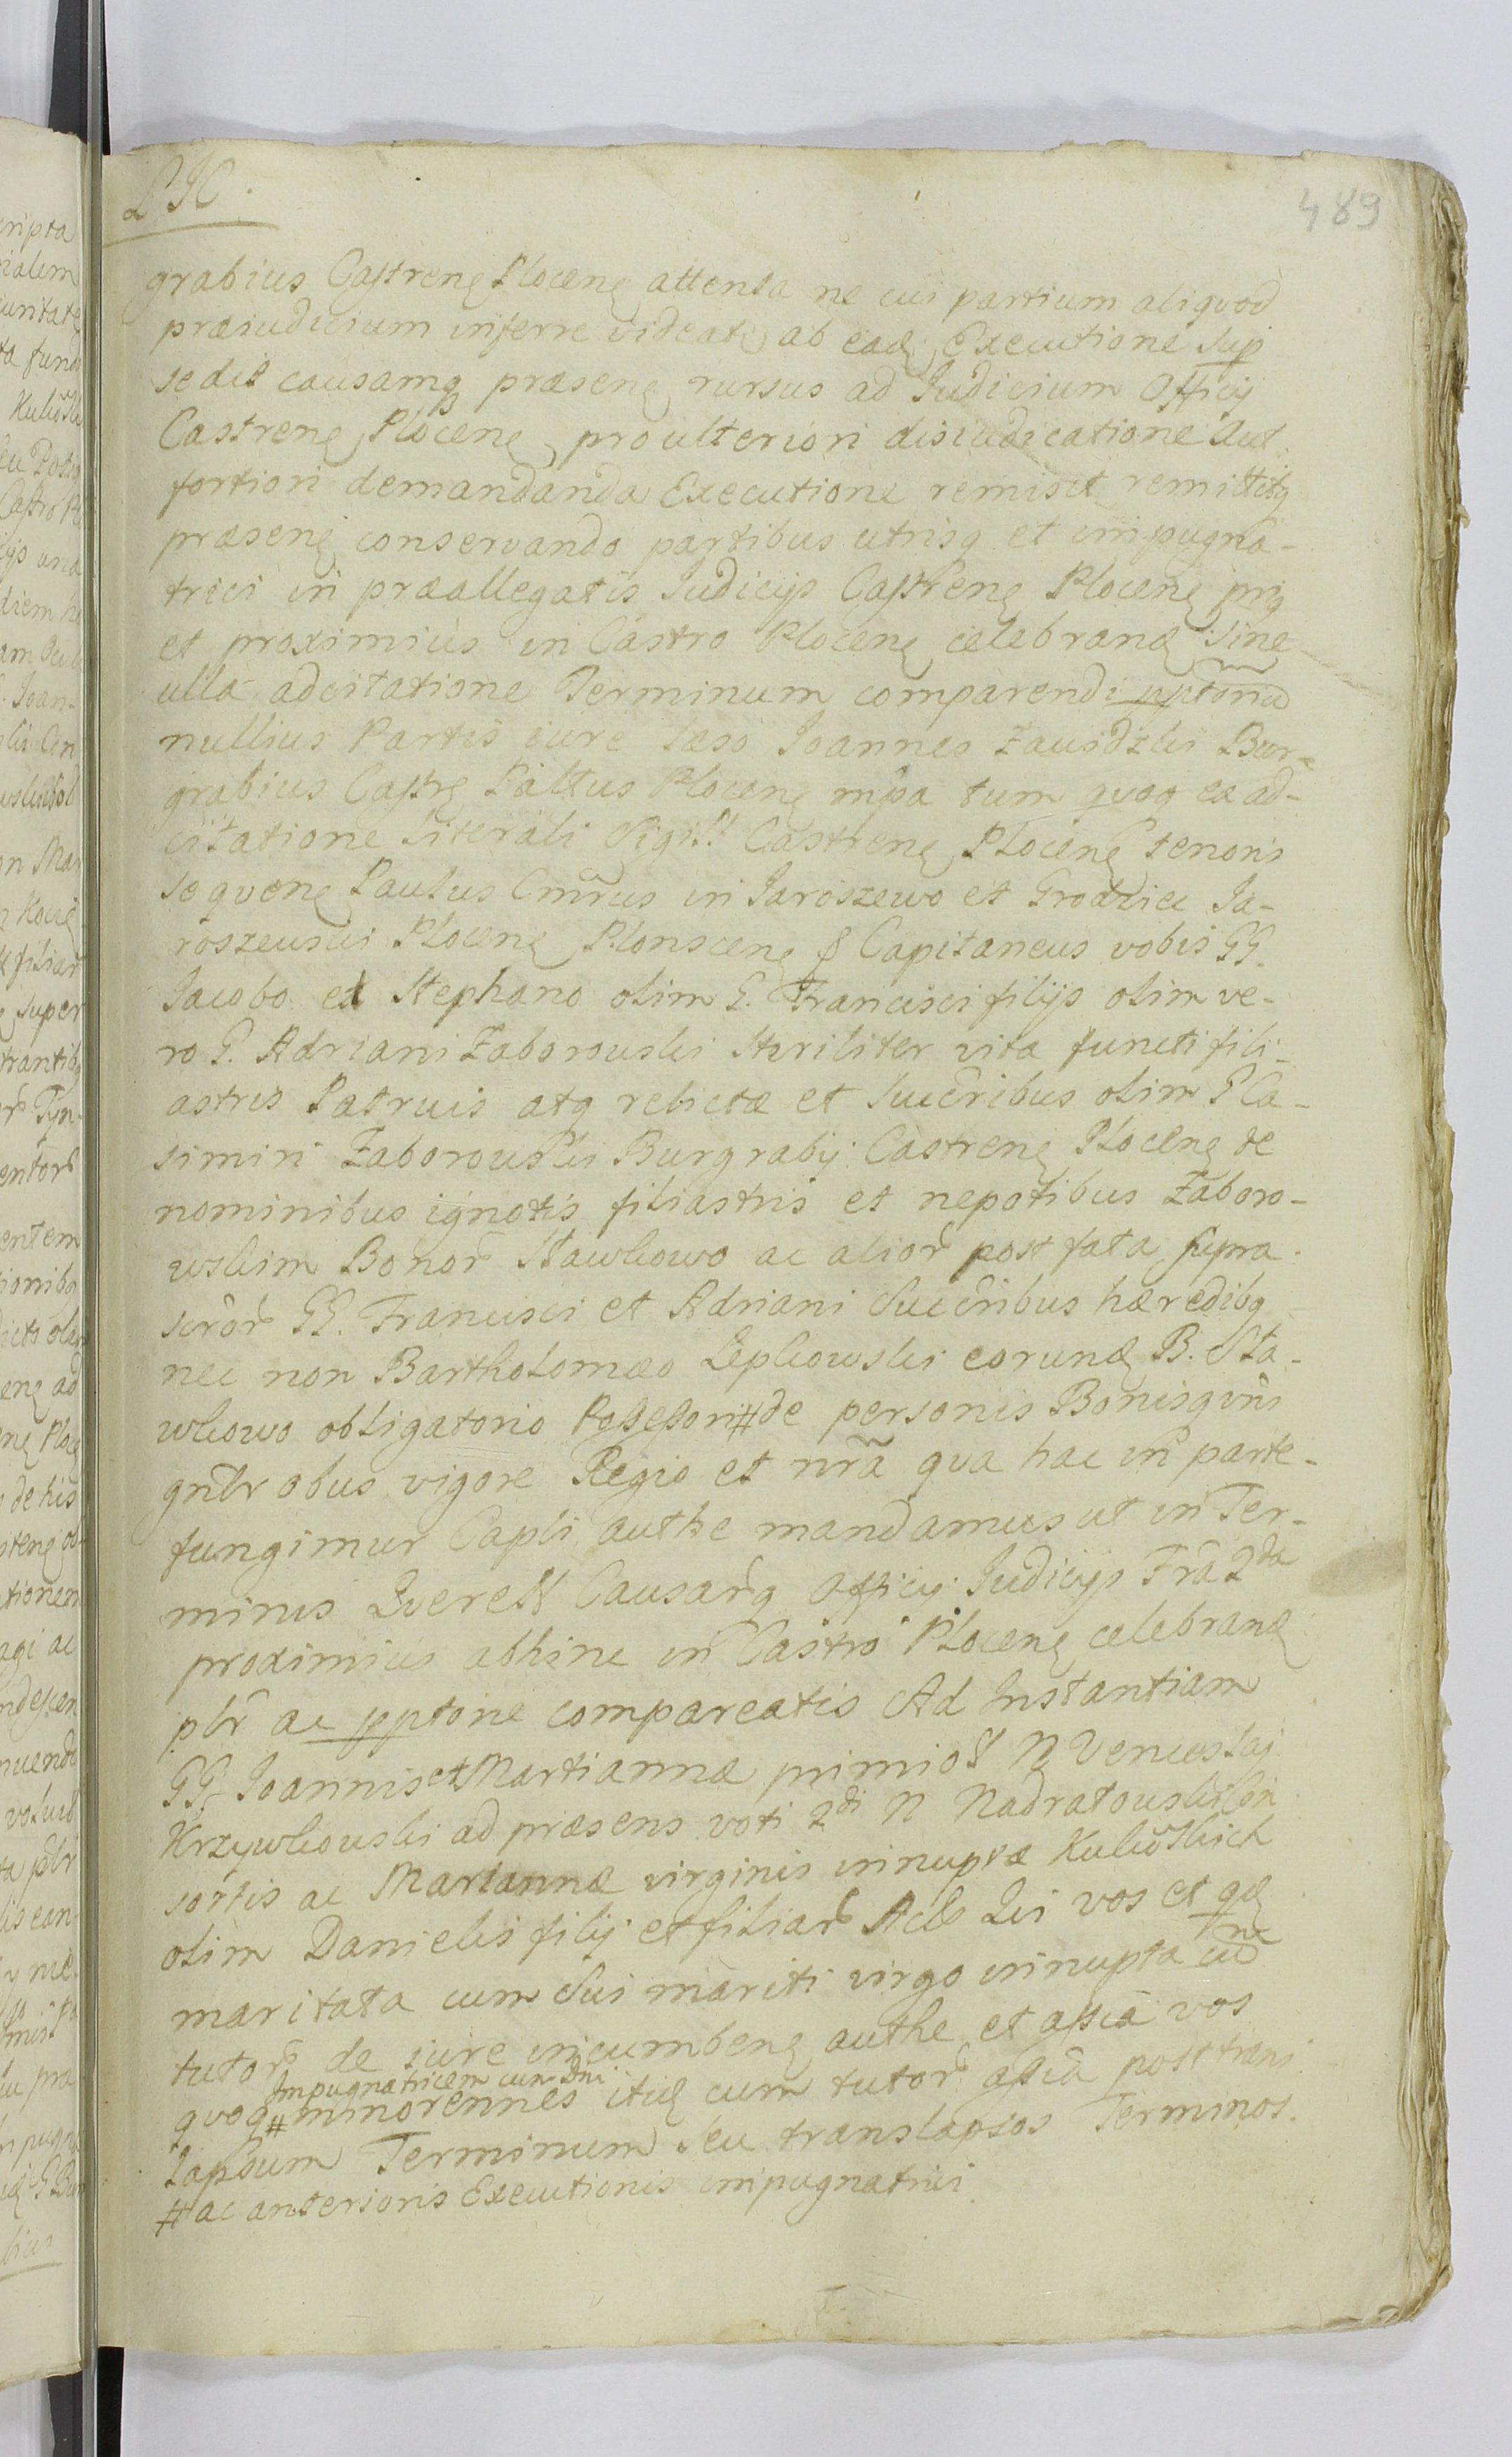 489
grabius Castrenę Plocenę attenta ne cui partium aliqvod
præiudicium inferre videatr ab eadę Executione sup
sedit causamq præsenę rursus ad Judicium Officij
Castrenę Plocenę pro ulteriori disiudicatione aut
fortiori demandanda Executione remisit remittitq
præsenę conservando partibus utrisq et impugna-
trici in præallegatis Judicijs Castrenę Plocenę priq
et proximius in Castro Plocenę celebrandę sine
ulla adcitatione Terminum comparendi pptorium
nullius Partis iure læso Joannes Zawidzki Bur-
grabius Castrę Pałtus Plocenę mpa tum qvoq ex ad-
citatione literali Sigill Castrenę Plocenę tenoris
seqvenę Paulus Cmrus in Jaroszewo et Grodziec Ja-
roszewski Plocenę Plonscenę & Capitaneus vobis GG.
Jacobo et Stephano olim G. Francisci filijs olim ve-
ro G. Adriani Zaborowski steriliter vita functi fili-
astris Patruis atq relictæ et succribus olim G Ca-
simiri Zaborowski Burgrabij Castrenę Plocenę de
nominibus ignotis filiastris et nepotibus Zaboro-
wskim Bonor Sławkowo ac alior post fata supra
scror GG. Francisci et Adriani Succribus hæredibq
nec non Bartholomæo Lepkowski eorundę B. Sta-
wkowo obligatorio Possessori # de personis Bonisq vris
gnlr obus vigore Regio et nra qva hac in parte
fungimur Capli authe mandamus ut in Ter-
minis Qverell Causarq Officij Judicijs Fra 2da
proximius abhinc in Castro Plocenę celebrandę
plr ac pptorie compareatis Ad Instantiam
GG. Joannis et Martiannæ primi voti N Venceslaj
Krzywkowski ad præsens voti 2di N Nadratowski Con
sortis ac Mariannæ virginis innuptæ Kulwskich
olim Danielis filij et filiar Actt Qui vos et qdę
maritata cum sui mariti virgo innupta
tutor de iure incumbenę authe et assia vos
Impugnatricem cum Dni
qvoq # minorennes itidę cum tutor assia post trans
lapsum Terminum seu translapsos Terminos.
# ac anterioris Executionis impugnatrici